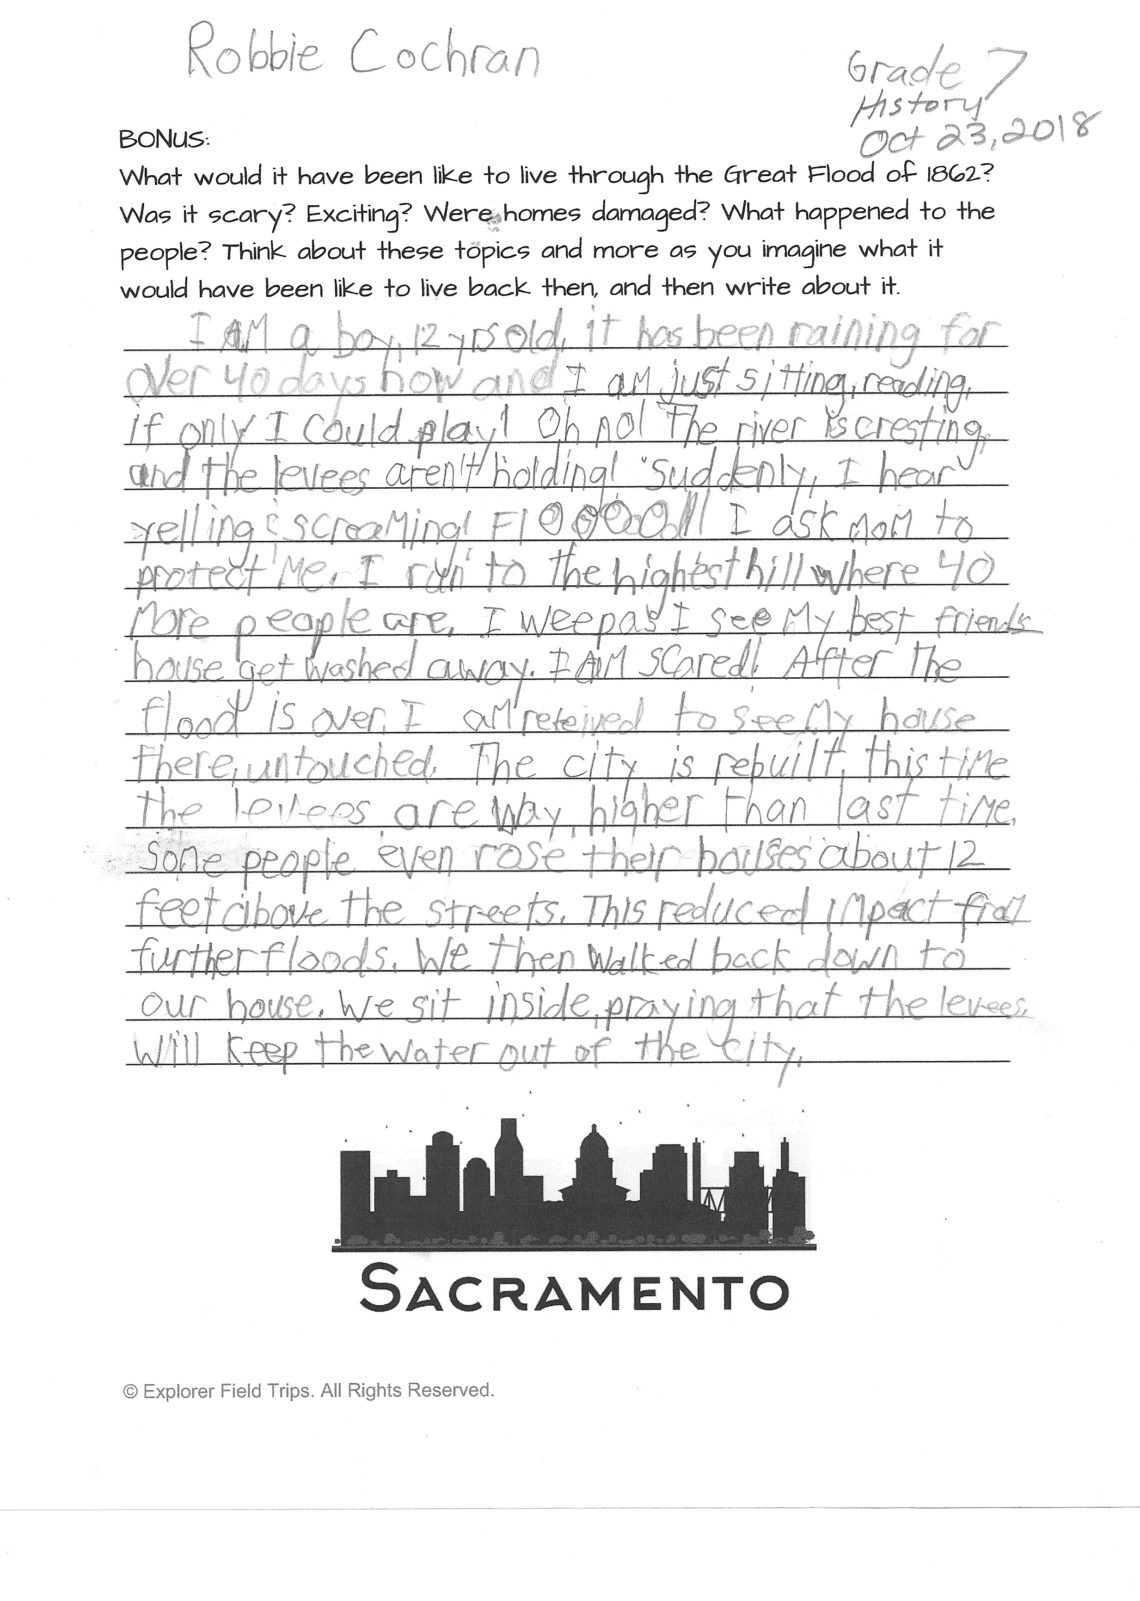 Robbie Cochran
Grade 7
History
Oct 23, 2018
BONUS:
What would it have been like to live through the Great Flood of 1862?
Was it scary? Exciting? Were homes damaged? What happened to the
people? Think about these topics and more as you imagine what it
would have been like to live back then, and then write about it.
I AM a boy, 12 yrs old, it has been raining for
over 40 days now and I am just sitting, reading,
if only I could play! Oh no! The river is cresting,
and the levees aren't holding! Suddenly, I hear
yelling & screaming! FlOOOOOd!! I ask mom to
protect me. I run to the highest hill where 40
more people are. I weep as I see my best friends
house get washed away. I AM scared! After the
flood is over, I am releived to see my house
there, untouched. The city is rebuilt, this time
the levees are way higher than last time.
Some people even rose their houses about 12
feet above the streets. This reduced impact from
further floods. We then walked back down to
our house. We sit inside, praying that the levees
will keep the water out of the city.
SACRAMENTO
© Explorer Field Trips. All Rights Reserved.